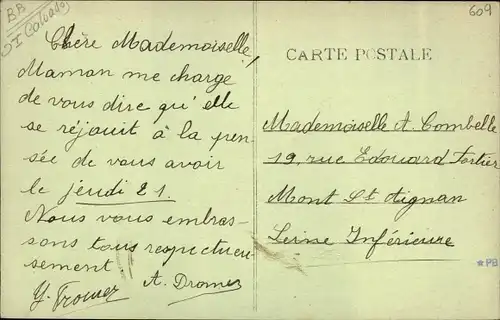 BB
ST Calvados
609
Chère Mademoiselle,
Maman me charge
de vous dire qu'elle
se réjouit à la pen-
sée de vous avoir
le jeudi 21.
Nous vous embras-
sons tous respectueu-
sement.
A. Dromer
CARTE POSTALE
Mademoiselle A. Combelle
19, rue Edouard Fortier
Mont St Aignan
Seine Inférieure
*PB